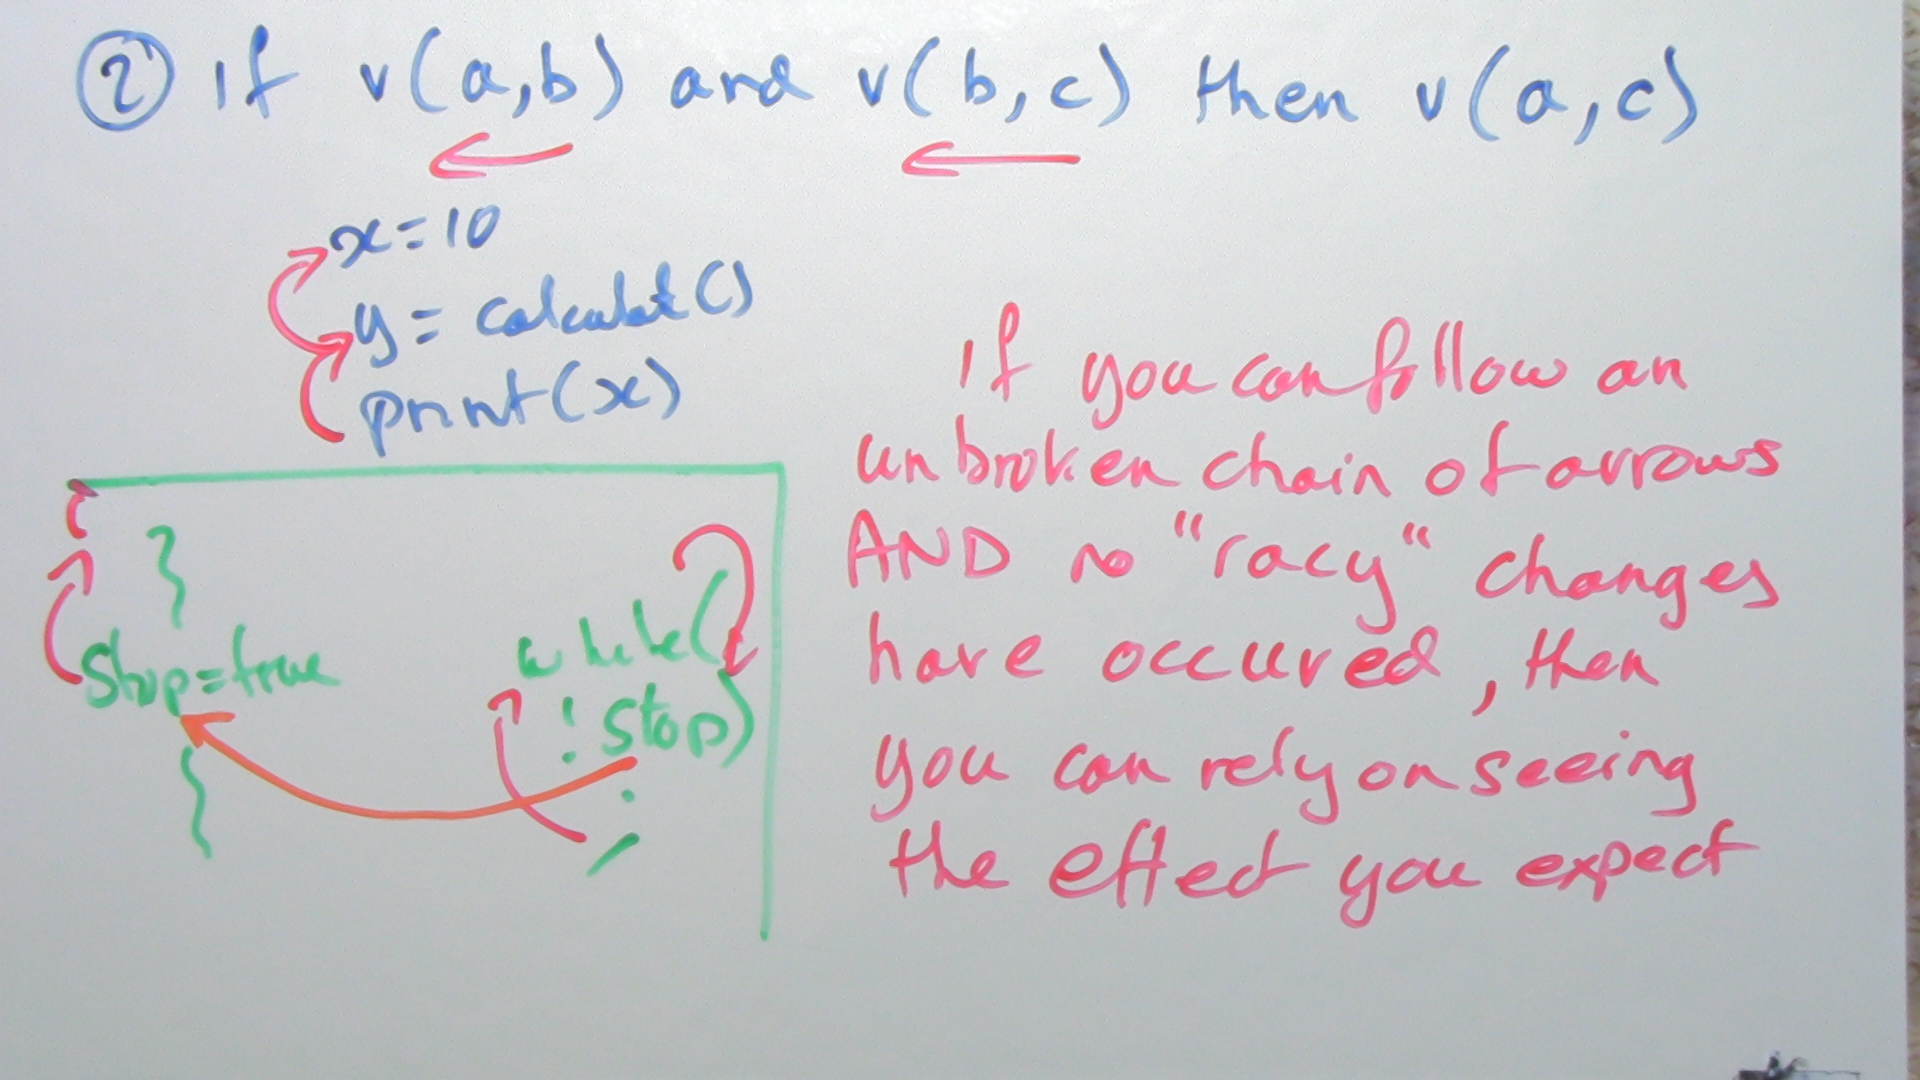 ② if v(a,b) and v(b,c) then v(a,c)
x=10
y = calculat()
print(x)
Stop=true
while(
!stop)
;
if you can follow an
unbroken chain of arrows
AND no "racy" changes
have occured, then
you can rely on seeing
the effect you expect